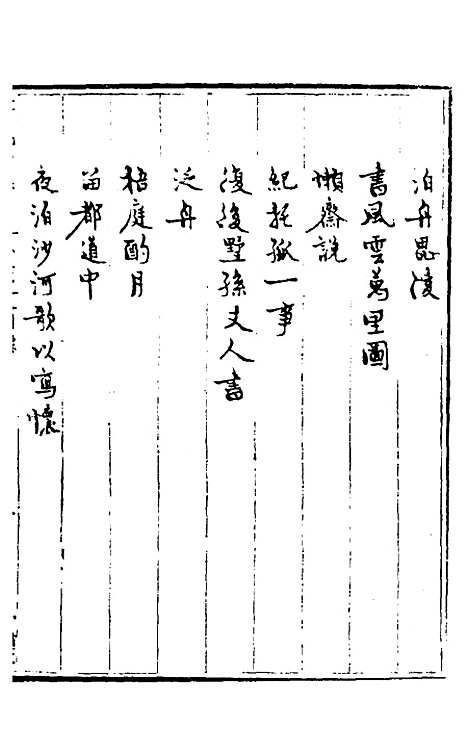 泊舟毘淩
書風雲萬里圖
懶齋說
紀托孤一事
復後墅孫丈人書
泛舟
梧庭酌月
留都道中
夜泊沙河歌以寫懷